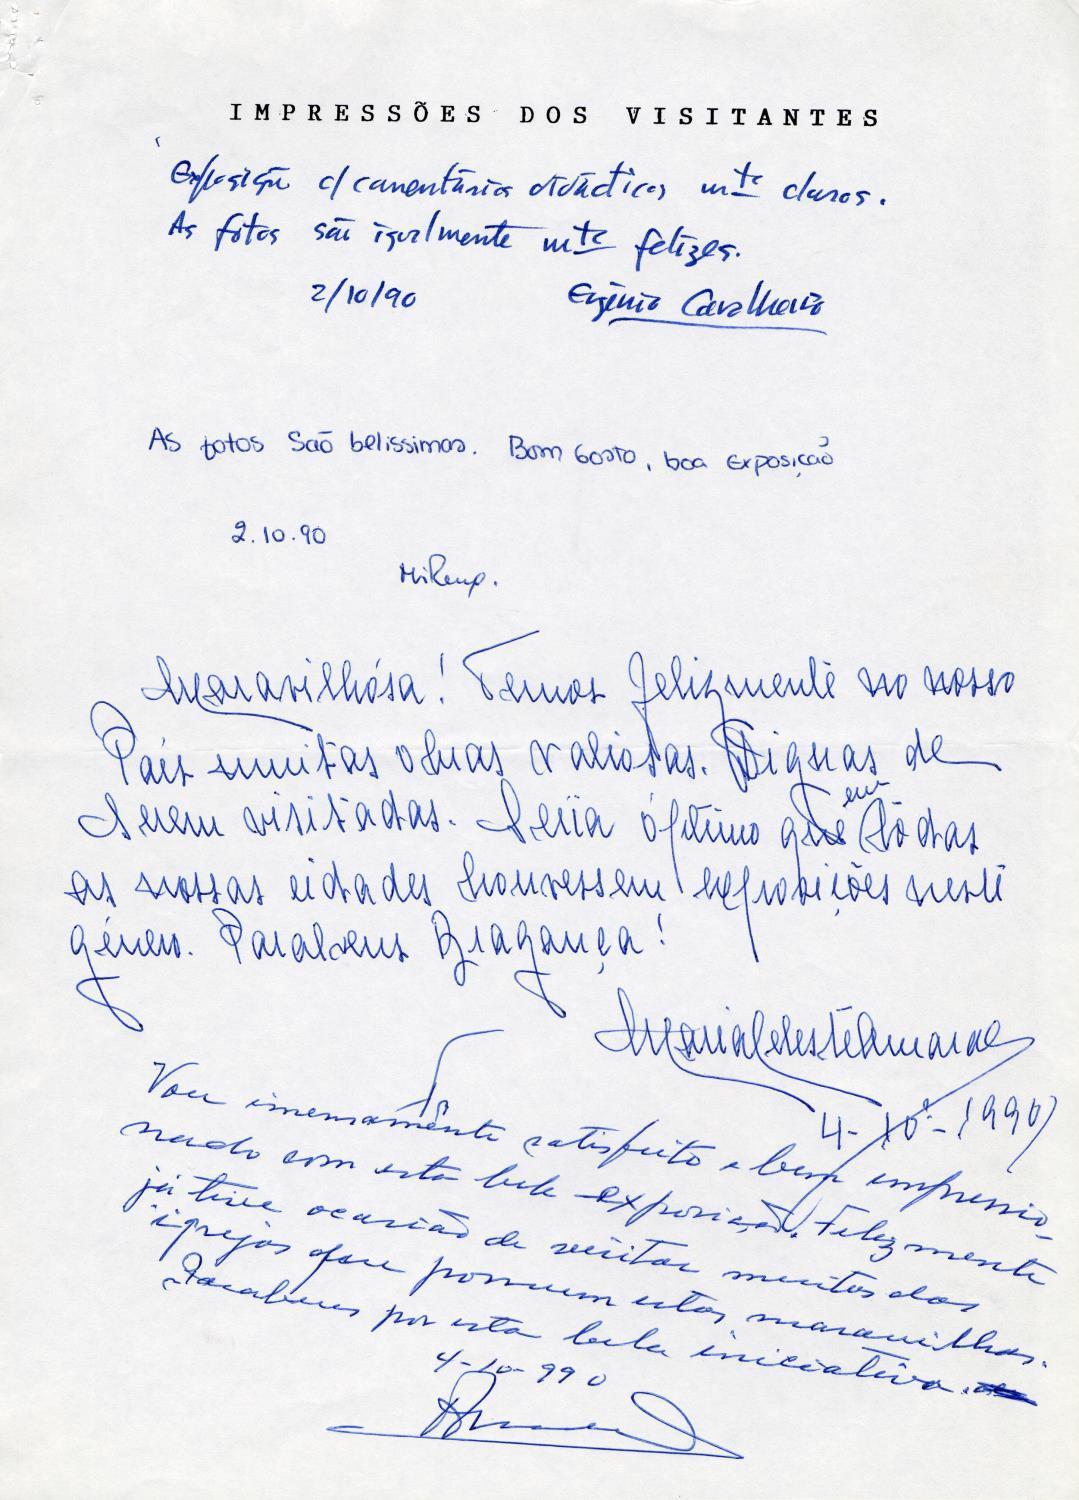 IMPRESSÕES DOS VISITANTES
Exposição c/ comentários didácticos mte claros.
As fotos são igualmente mte felizes.
2/10/90 Eugénio Cavalheiro
As fotos são belissimas. Bom Gosto, boa exposição
2.10.90
Maravilhósa! Temos felizmente no nosso
País muitas obras valiosas. Dignas de
serem visitadas. Seria óptimo que em tôdas
as nossas cidades houvessem exposições neste
género. Parabens Bragança!
Maria Celeste Amaral
4-10-1990
Vou imensamente satisfeito e bem impressio-
nado com esta bela exposição. Felizmente
já tive ocasião de visitar muitas das
igrejas que possuem estas maravilhas.
Parabens por esta bela iniciativa.
4-10-990